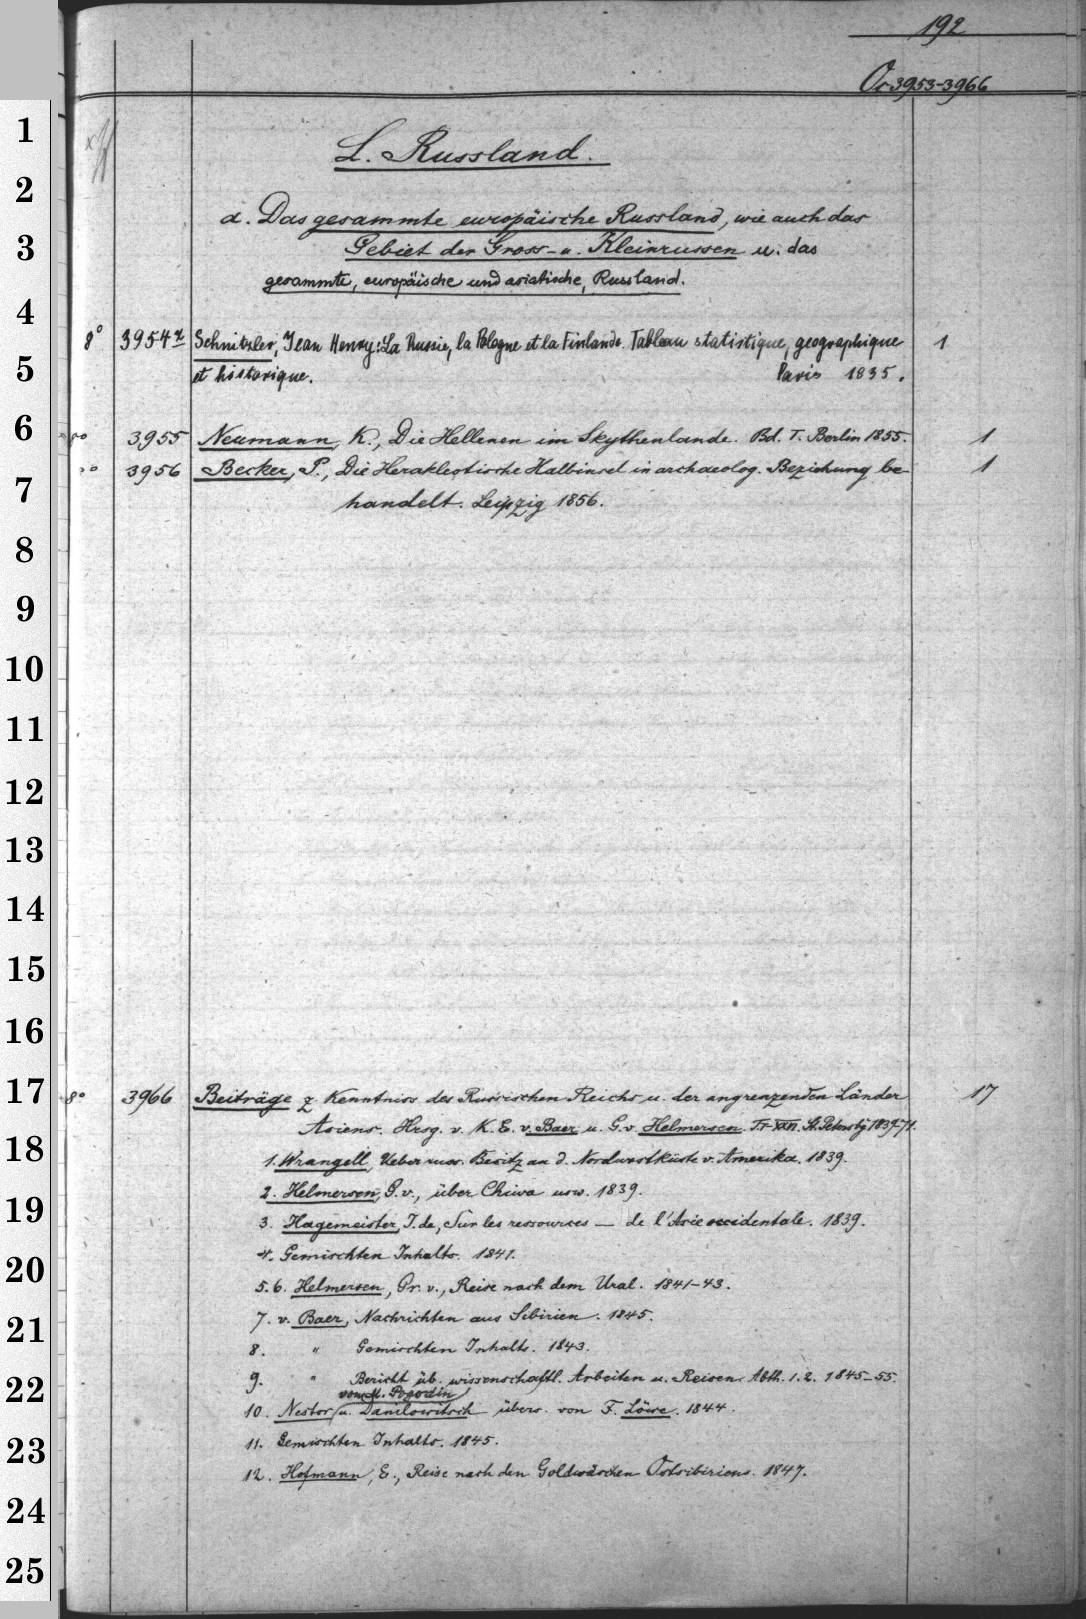 192
Or 3953-3966
L. Russland.
a. Das gesammte europäische Russland, wie auch das
Gebiet der Gross- u. Kleinrussen u. das
gesammte, europäische und asiatische, Russland.
8° 3954 Schnitzler, Jean Henry: La Russie, la Pologne et la Finlande. Tableau statistique, geographique 1
et historique. Paris 1835.
3955 Neumann, K., Die Hellenen im Skythenlande. Bd. I. Berlin 1855. 1
3956 Becker, P., Die Herakleotische Halbinsel in archaeolog. Beziehung be- 1
handelt. Leipzig 1856.
8° 3966 Beiträge z. Kenntniss des Russischen Reichs u. der angrenzenden Länder 17
Asiens. Hrsg. v. K. E. v. Baer u. G. v. Helmersen. St. Petersbg 1839-71.
1. Wrangell, Ueber russ. Besitz an d. Nordwestküste v. Amerika. 1839.
2. Helmersen, G. v., über Chiwa usw. 1839.
3. Hagemeister, J. de, Sur les ressources — de l'Asie occidentale. 1839.
4. Gemischten Inhalts. 1841.
5. 6. Helmersen, Gr. v., Reise nach dem Ural. 1841-43.
7. v. Baer, Nachrichten aus Sibirien. 1845.
8. " Gemischten Inhalts. 1843.
9. " Bericht üb. wissenschaftl. Arbeiten u. Reisen. Abth. 1. 2. 1845-55.
von M. Pogodin
10. Nestor u. Danilowitsch übers. von F. Löwe. 1844.
11. Gemischten Inhalts. 1845.
12. Hofmann, E., Reise nach den Goldwäschen Ostsibiriens. 1847.
1
2
3
4
5
6
7
8
9
10
11
12
13
14
15
16
17
18
19
20
21
22
23
24
25